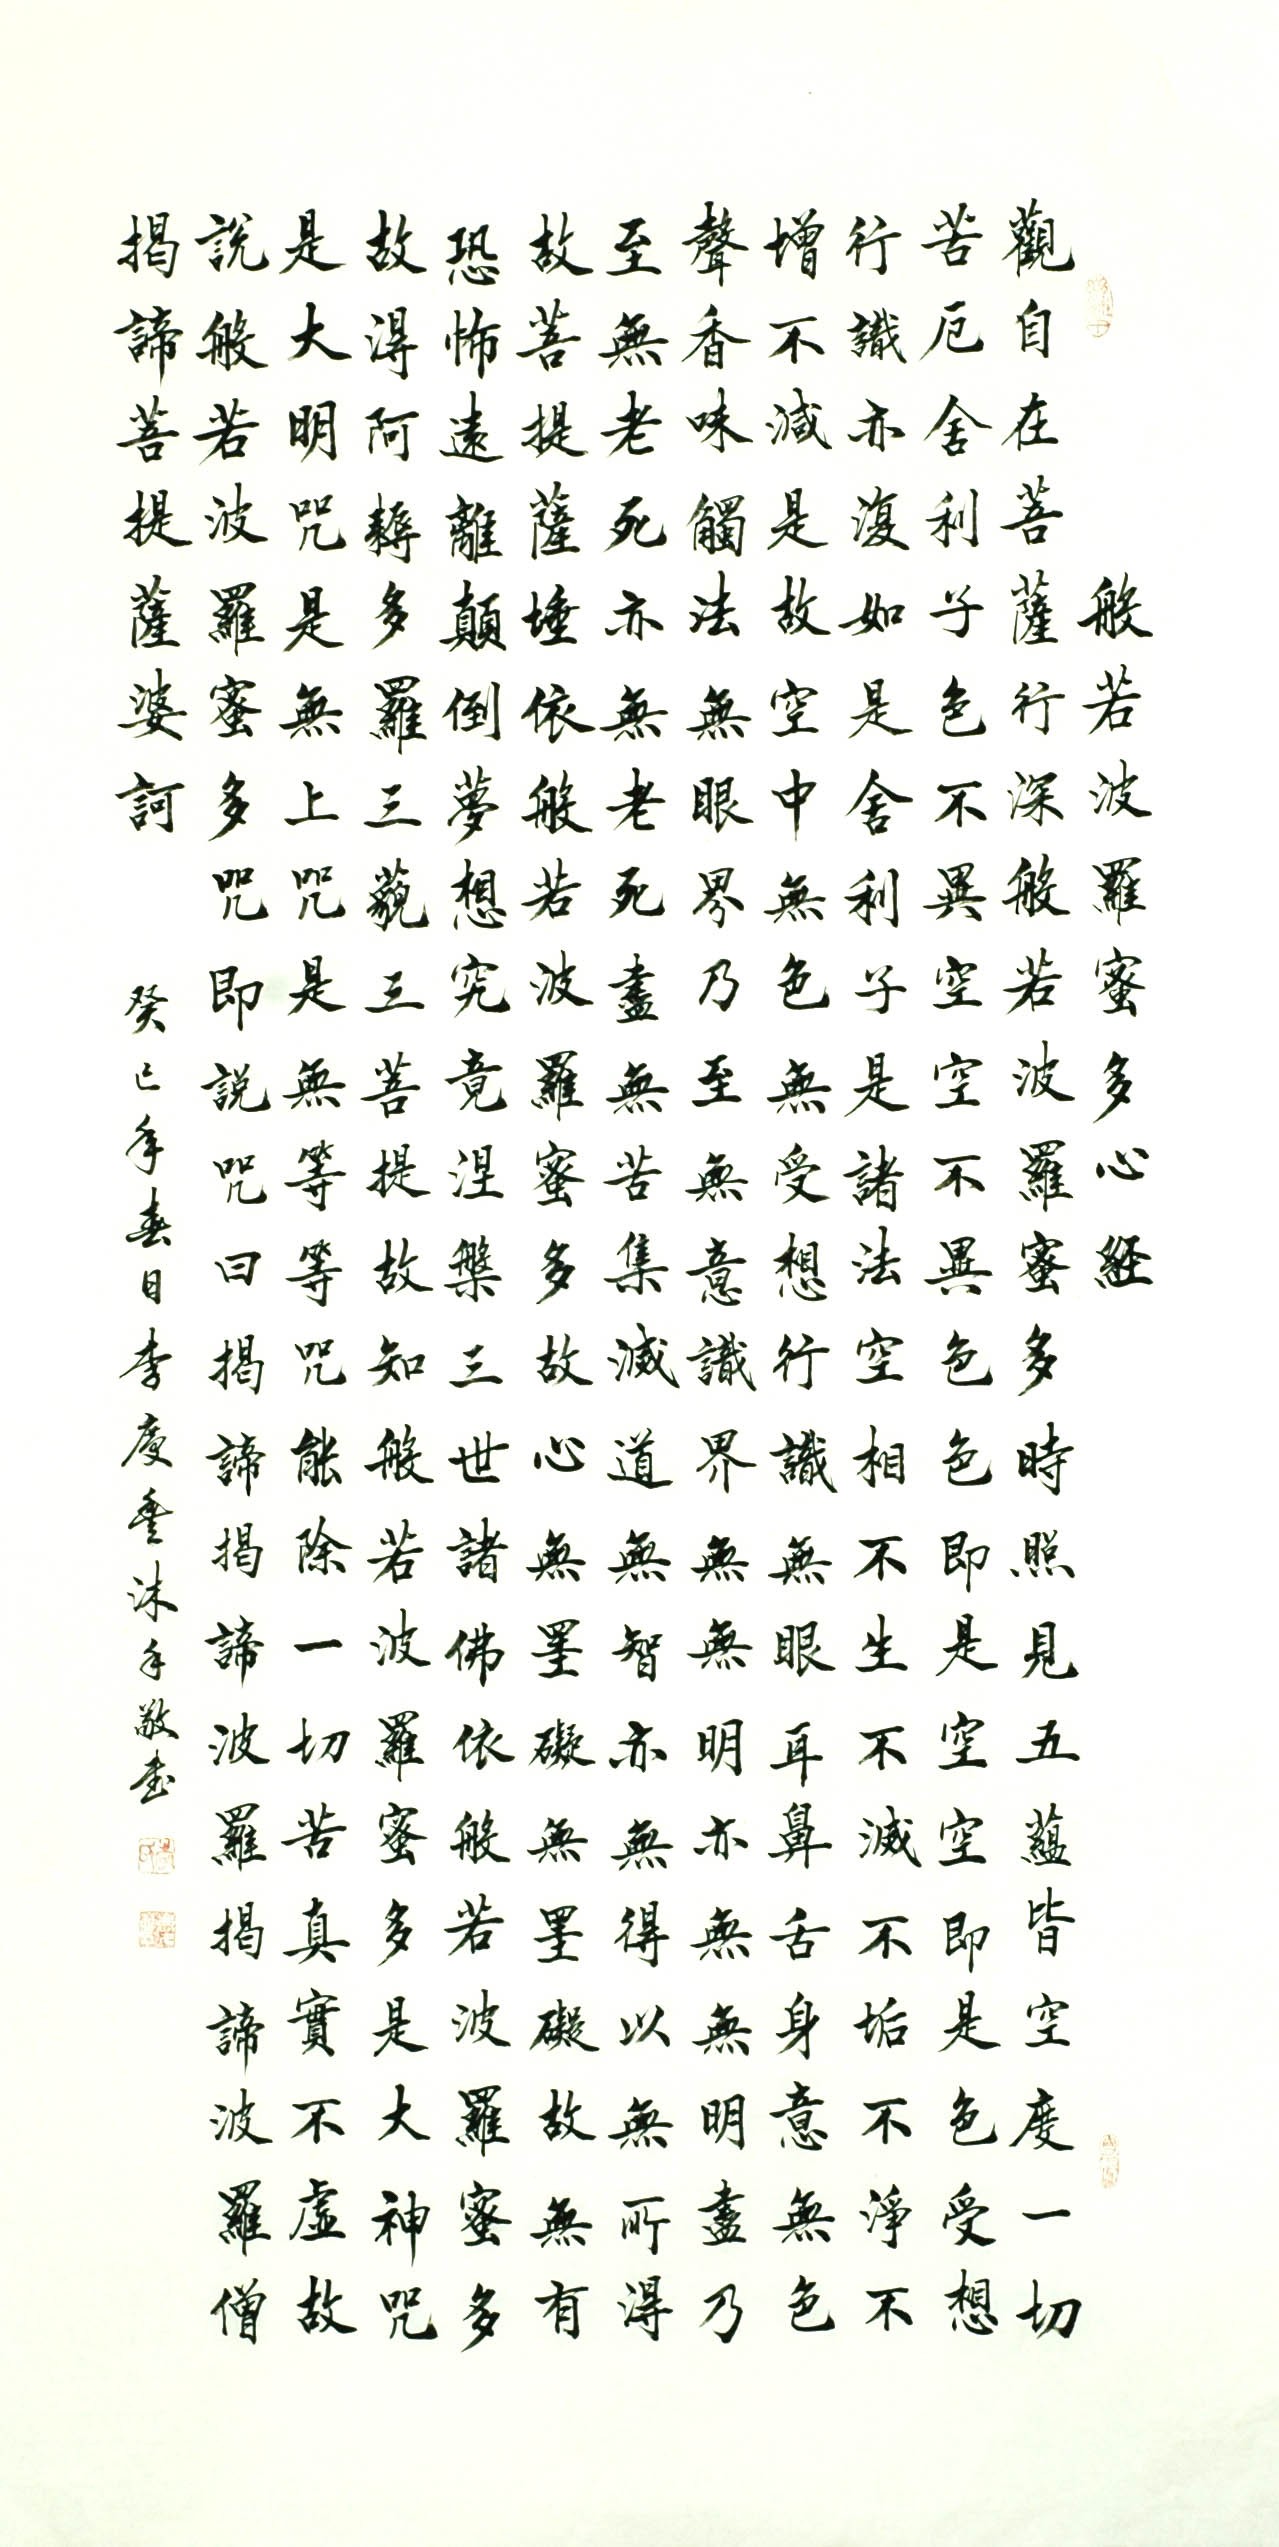 般若波羅蜜多心経
觀自在菩薩行深般若波羅蜜多時照見五蘊皆空度一切
苦厄舍利子色不異空空不異色色即是空空即是色受想
行識亦復如是舍利子是諸法空相不生不滅不垢不淨不
增不減是故空中無色無受想行識無眼耳鼻舌身意無色
聲香味觸法無眼界乃至無意識界無無明亦無無明盡乃
至無老死亦無老死盡無苦集滅道無智亦無得以無所得
故菩提薩埵依般若波羅蜜多故心無罣礙無罣礙故無有
恐怖遠離顛倒夢想究竟涅槃三世諸佛依般若波羅蜜多
故得阿耨多羅三藐三菩提故知般若波羅蜜多是大神咒
是大明咒是無上咒是無等等咒能除一切苦真實不虛故
說般若波羅蜜多咒即説咒曰揭諦揭諦波羅揭諦波羅僧
揭諦菩提薩婆訶
癸巳年春月李慶雲沐手敬書